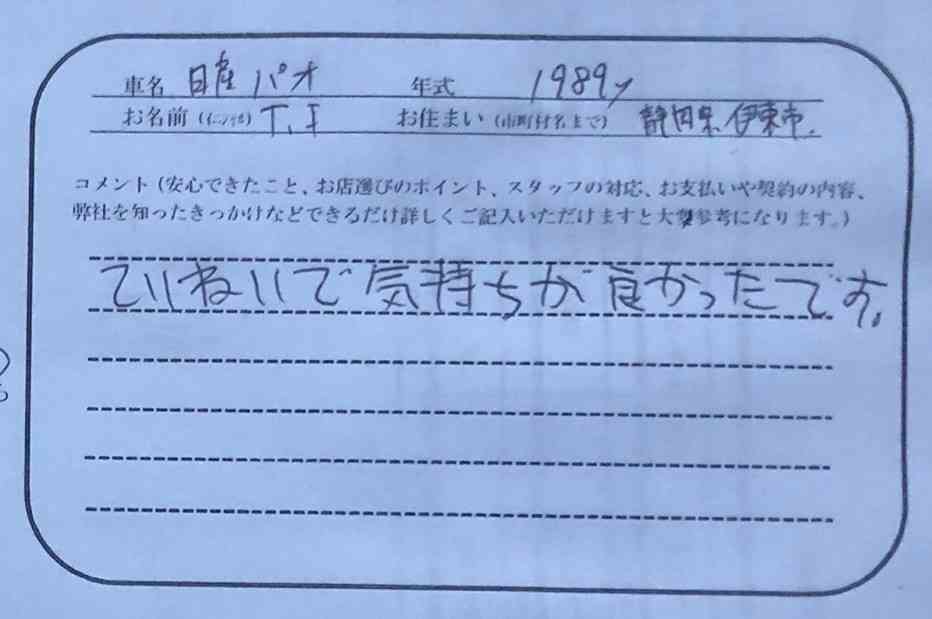 車名 日産 パオ 年式 1989y
お名前(イニシャル) T.I お住まい(市町村名まで) 静岡県 伊東市.
コメント(安心できたこと、お店選びのポイント、スタッフの対応、お支払いや契約の内容、
弊社を知ったきっかけなどできるだけ詳しくご記入いただけますと大変参考になります。)
ていねいで気持ちが良かったです。